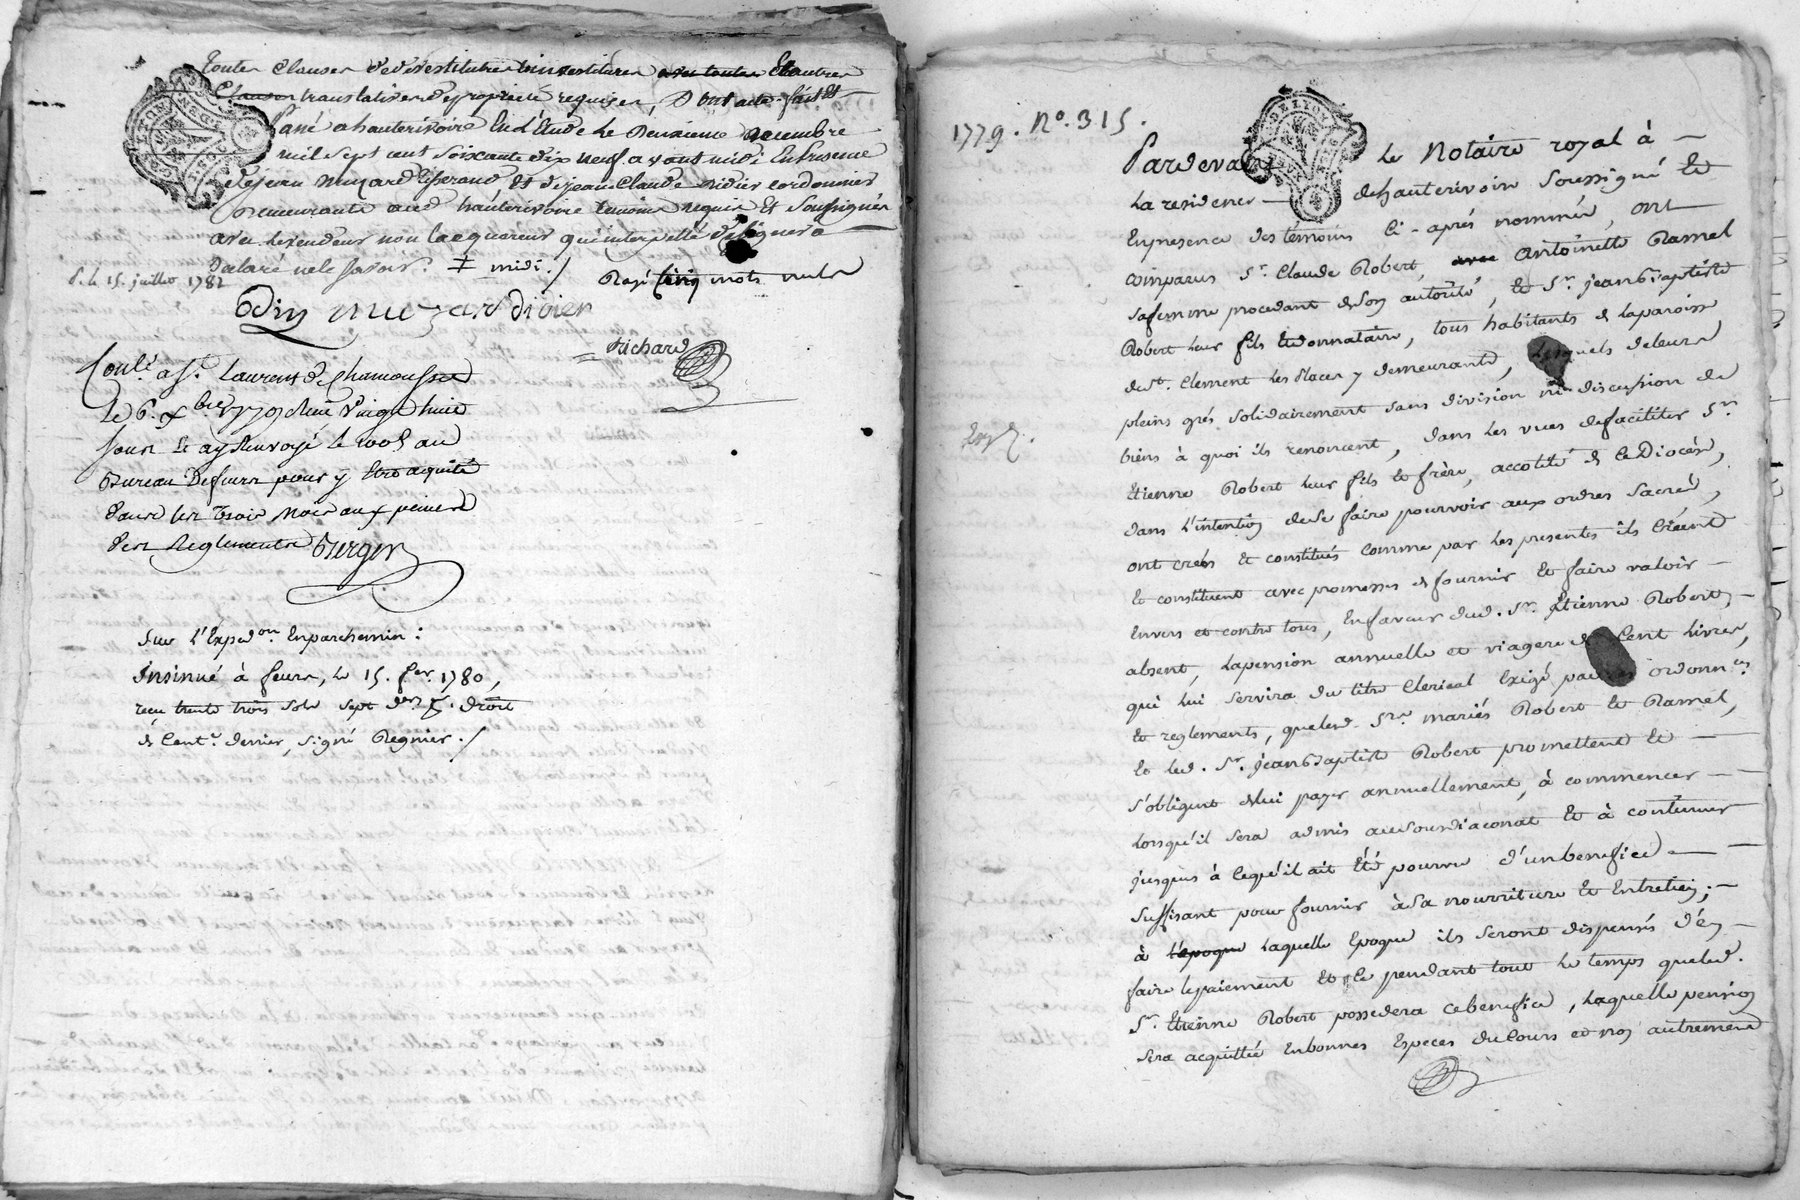 toutes clauses de devestitures investitures avec toutes Et autres
Clauses translatives de propriété requises, Dont acte fait Et
Passé a hauterivoire En L'Etude Le Deuxieme decembre
mil sept cent Soixante dix neuf avant midi En Presence
de jean muzard tisserand, Et de jean Claude didier cordonnier
demeurants aud hauterivoire temoins requis Et Soussignés
avec le vendeur non lacquereur qui interpellé de signer a
declaré ne le savoir. ‡ midi ./ Rayé Cinq mots nuls
P. le 15. juillet 1782
Odin muzard didier
Richard
Conlé a St. Laurent de Chamousset
Le 6. xbre 1779 Reçu vingt huit
sous Et ay Renvoyé le 100e au
Bureau De feurs pour y Etre aquité
dans les trois mois aux peines
des Reglements Berger
Sur L'Exped.on En parchemin :
Insinué à feurs, le 15. fer. 1780,
reçu trente trois sols sept d.ers . droit
de Cent.e denier, signé Regnier ./
1779. No. 315.
Pardevant le Notaire royal à —
La residence — de hauterivoire Soussigné Et
En presence des témoins Ci-après nommés, ont
comparus Sr. Claude Robert, avec Antoinette Ramel
sa femme procedant de Son autorité, Et Sr. jean Baptiste
Robert leur fils Et donnataire, tous habitants de la paroisse
de St. Clement les Places y demeurants, Lesquels de leurs
pleins grés solidairement sans division ni discution de
biens à quoi ils renoncent, dans les vues de faciliter Sr.
Expé.
Etienne Robert leur fils Et frère, accolité de Ce Diocèse,
dans l'intention de se faire pourvoir aux ordres Sacrés,
ont créés Et constitués comme par les presentes ils Créent
Et constituent avec promesses de fournir Et faire valoir —
Envers et contre tous, En faveur dud. Sr. Etienne Robert, —
absent, la pension annuelle et viagere de Cent Livres,
qui lui Servira du titre Clerical Exigé par les ordonn.ces
Et reglements, que lesd. Srs. mariés Robert Et Ramel,
Et led. Sr. jean Baptiste Robert promettent Et —
s'obligent de lui payer annuellement, à commencer —
Lorsqu'il sera admis au sousdiaconat Et à continuer
jusques à ce qu'il ait Eté pourvu d'un benefice — —
suffisant pour fournir à Sa nourriture Et Entretien ; —
à l'epoque Laquelle Epoque ils seront dispensés d'en —
faire le paiement Et Ce pendant tout le temps que led.
Sr. Etienne Robert possedera ce benefice, Laquelle pension
sera acquittée En bonnes Especes du Cours et non autrement